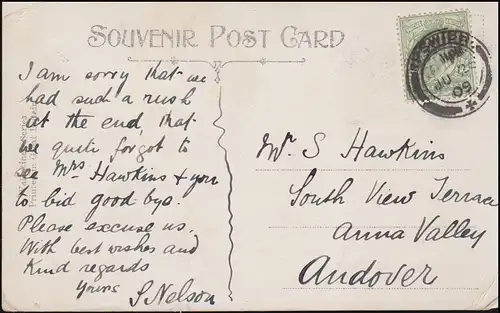 SOUVENIR POST CARD
I am sorry that we
had such a rush
at the end, that
we quite forgot to
see Mrs Hawkins & you
to bid good bye.
Please excuse us.
With best wishes and
Kind regards
Yours
S Nelson
Mr S Hawkins
South View Terrace
Anna Valley
Andover
09